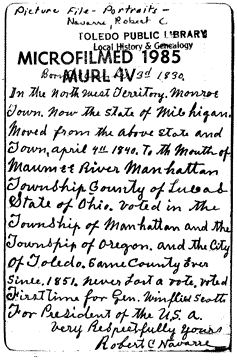 Picture File - Portraits -
Navarre, Robert C.
TOLEDO PUBLIC LIBRARY
Local History & Genealogy
MICROFILMED 1985
MURL 4V
Born 3rd 1830.
In the Northwest Territory. Monroe
Town. Now the state of Michigan.
Moved from the above state and
Town, april 4th 1840. To th Mouth of
Maumee River Manhattan
Township County of Lucas
State of Ohio. voted in the
Township of Manhattan and the
Township of Oregon. and the City
Of Toledo. Same County Ever
Since. 1851. never Lost a vote, voted
First time for Gen. Winflied Scott
For President of the U.S.a.
Very Respectfully yours
Robert C Navarre